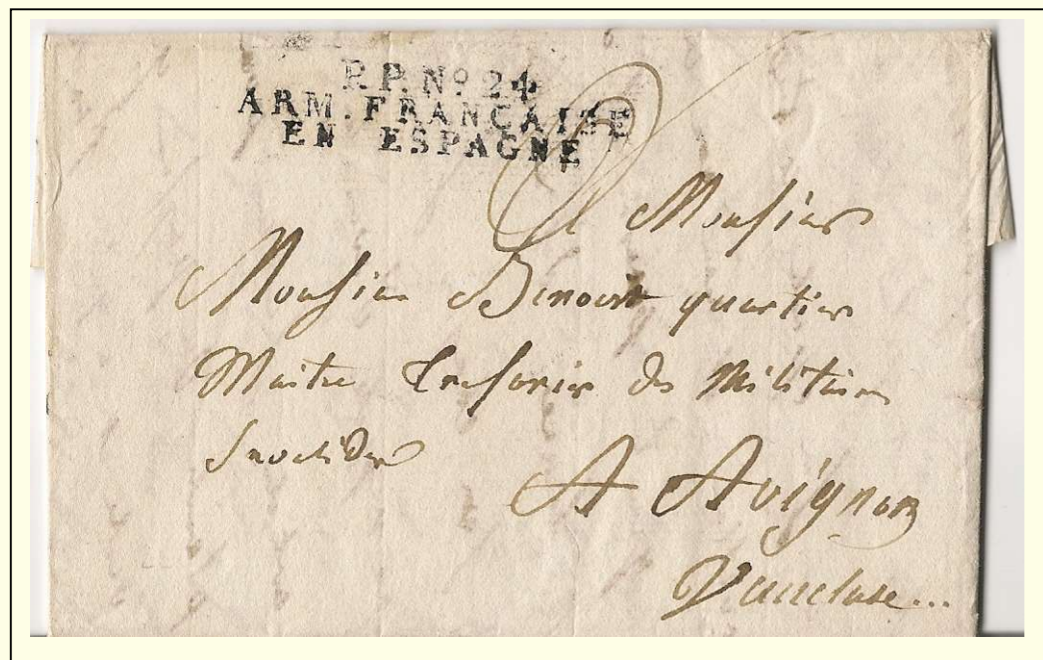 P.P. Nº 24
ARM. FRANÇAISE
EN ESPAGNE
A Monsieur
Monsieur Benoist quartier
Maitre Tresorier des Militaires
Invalides
A Avignon
Vaucluse...